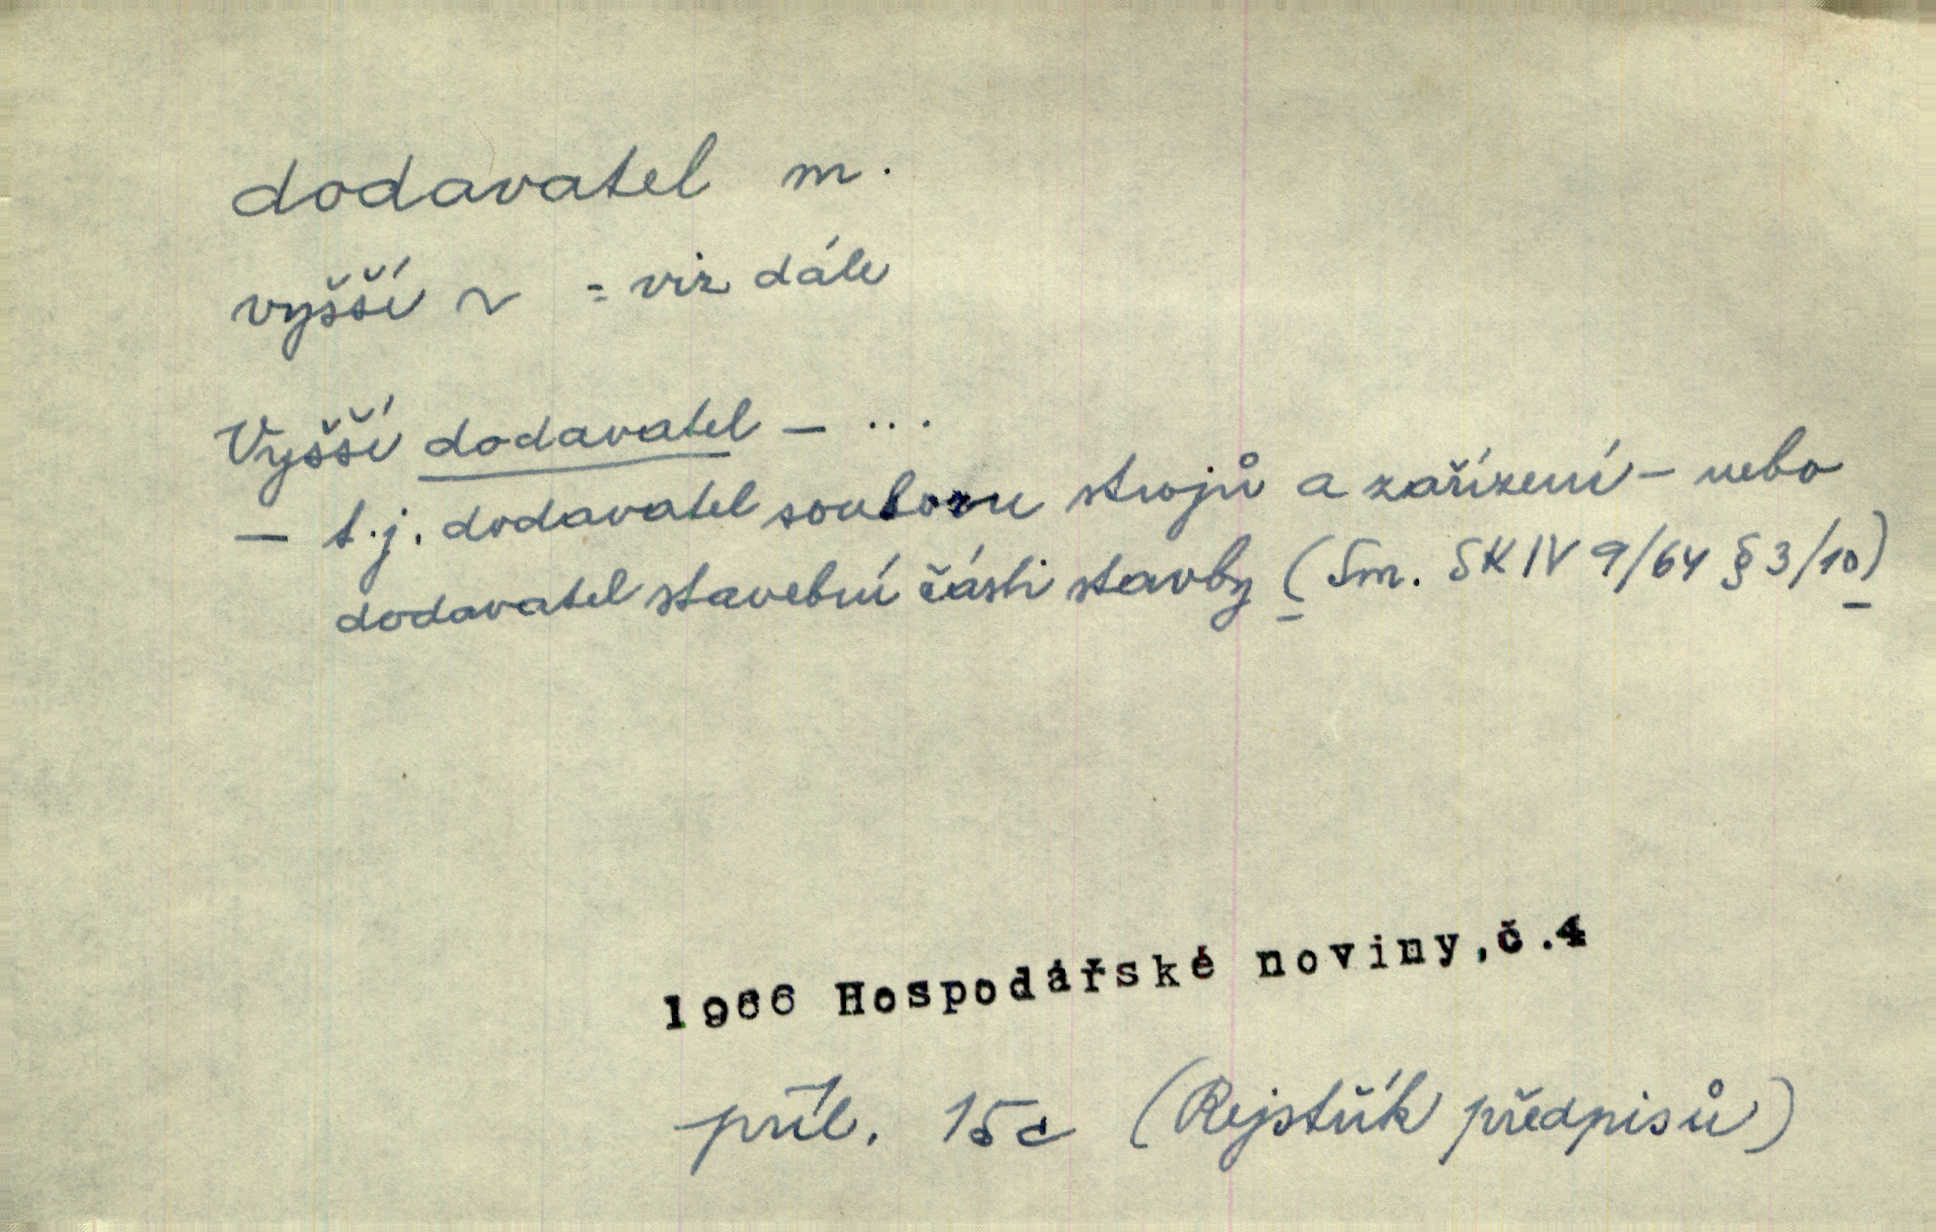 dodavatel m.
vyšší ~ = viz dále
Vyšší dodavatel – ...
– t.j. dodavatel souboru strojů a zařízení – nebo
dodavatel stavební části stavby (Sm. SK IV 9/64 § 3/10)
1966 Hospodářské noviny,č.4
příl. 15c (Rejstřík předpisů)